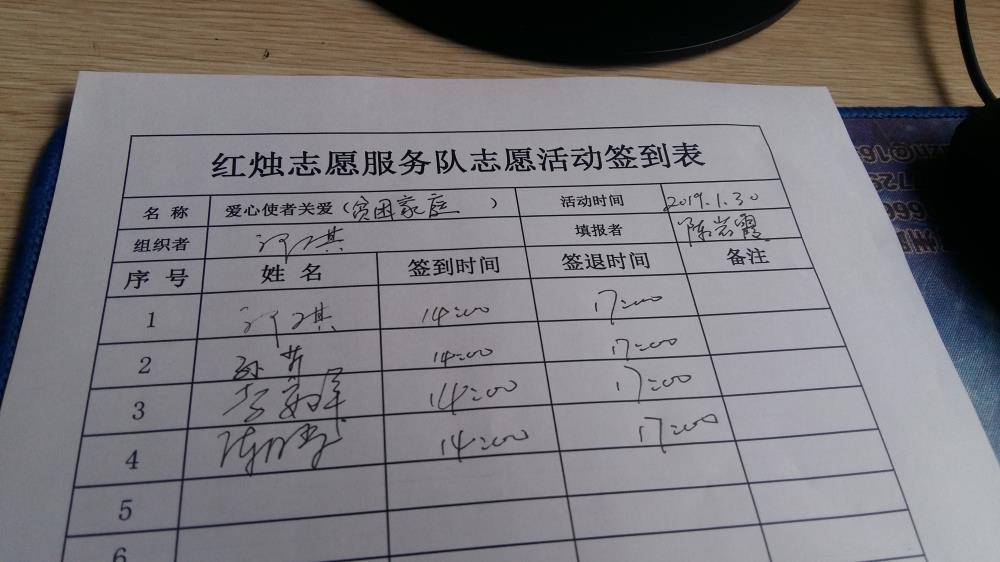 红烛志愿服务队志愿活动签到表
名 称 爱心使者关爱(贫困家庭 ) 活动时间 2019.1.30
组织者 许琪 填报者 陈岩霞
序 号 姓 名 签到时间 签退时间 备注
1 许琪 14:00 17:00
2 14:00 17:00
3 14:00 17:00
4 14:00 17:00
5
6